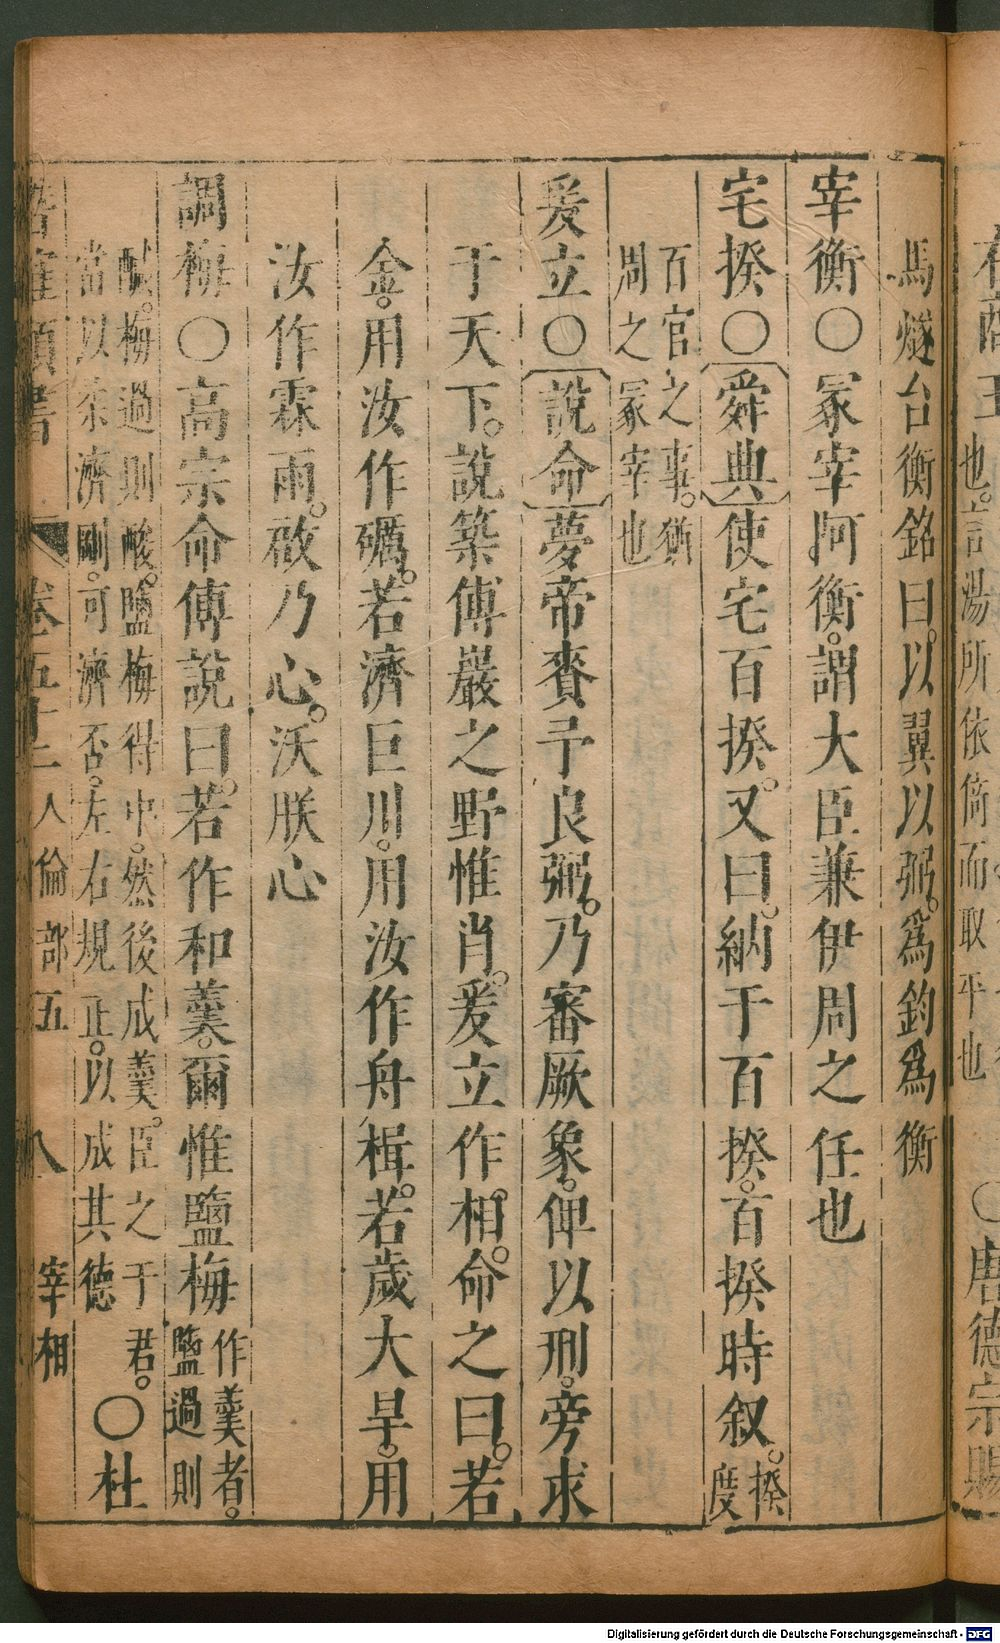 商王也。言湯所依倚而取平也○唐德宗賜
馬燧台衡銘曰。以翼以弼。爲鈞爲衡
宰衡○冢宰阿衡。謂大臣兼伊周之任也
宅揆○舜典使宅百揆。又曰。納于百揆。百揆時叙。揆度
百官之事。猶
周之冢宰也
爰立○說命夢帝賚予良弼。乃審厥象。俾以刑。旁求
于天下。說築傅巖之野惟肖。爰立作相。命之曰。若
金。用汝作礪。若濟巨川。用汝作舟楫。若歲大旱。用
汝作霖雨。啟乃心。沃朕心
調梅○高宗命傅說曰。若作和羹。爾惟鹽梅作羹者。鹽過則
醎。梅過則酸。鹽梅得中。然後成羹。臣之于君。
當以柔濟剛。可濟否。左右規正。以成其德○杜
類書 卷五十二 人倫部五 八 宰相
Digitalisierung gefördert durch die Deutsche Forschungsgemeinschaft - DFG